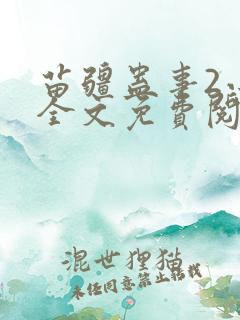 苗疆蛊事2
全文免費閱
混世狸猫
未经同意禁止转载